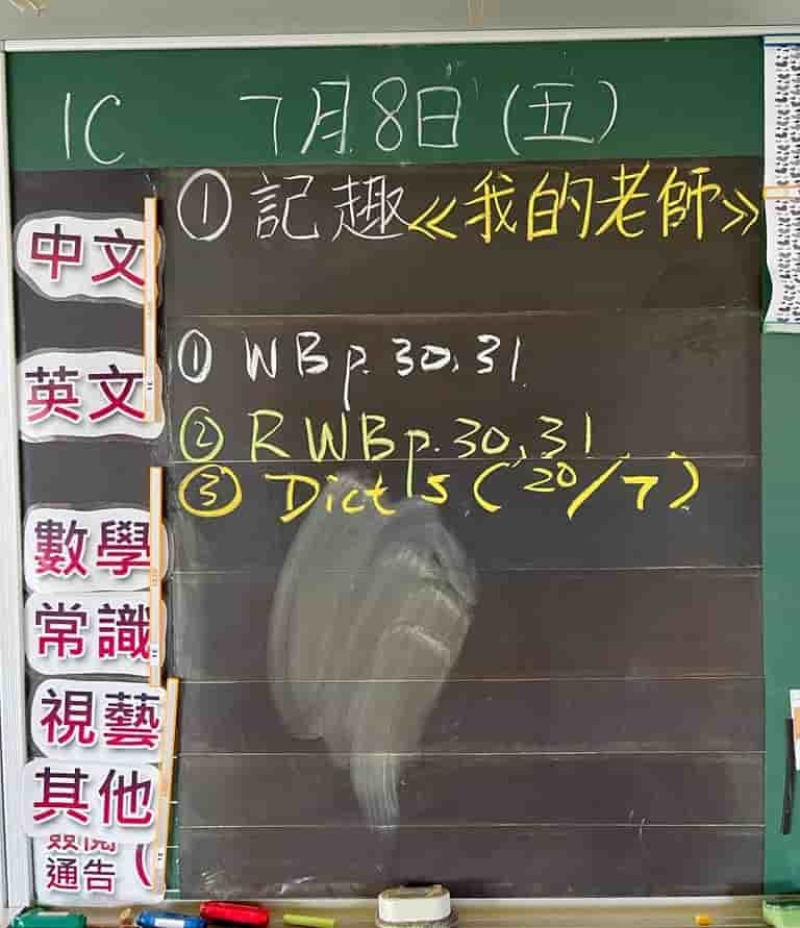 1C 7月8日(五)
中文 ①記趣《我的老師》
英文 ① WB p.30,31
② RWB p.30,31
③ Dict 15 (20/7)
數學
常識
視藝
其他
通告(